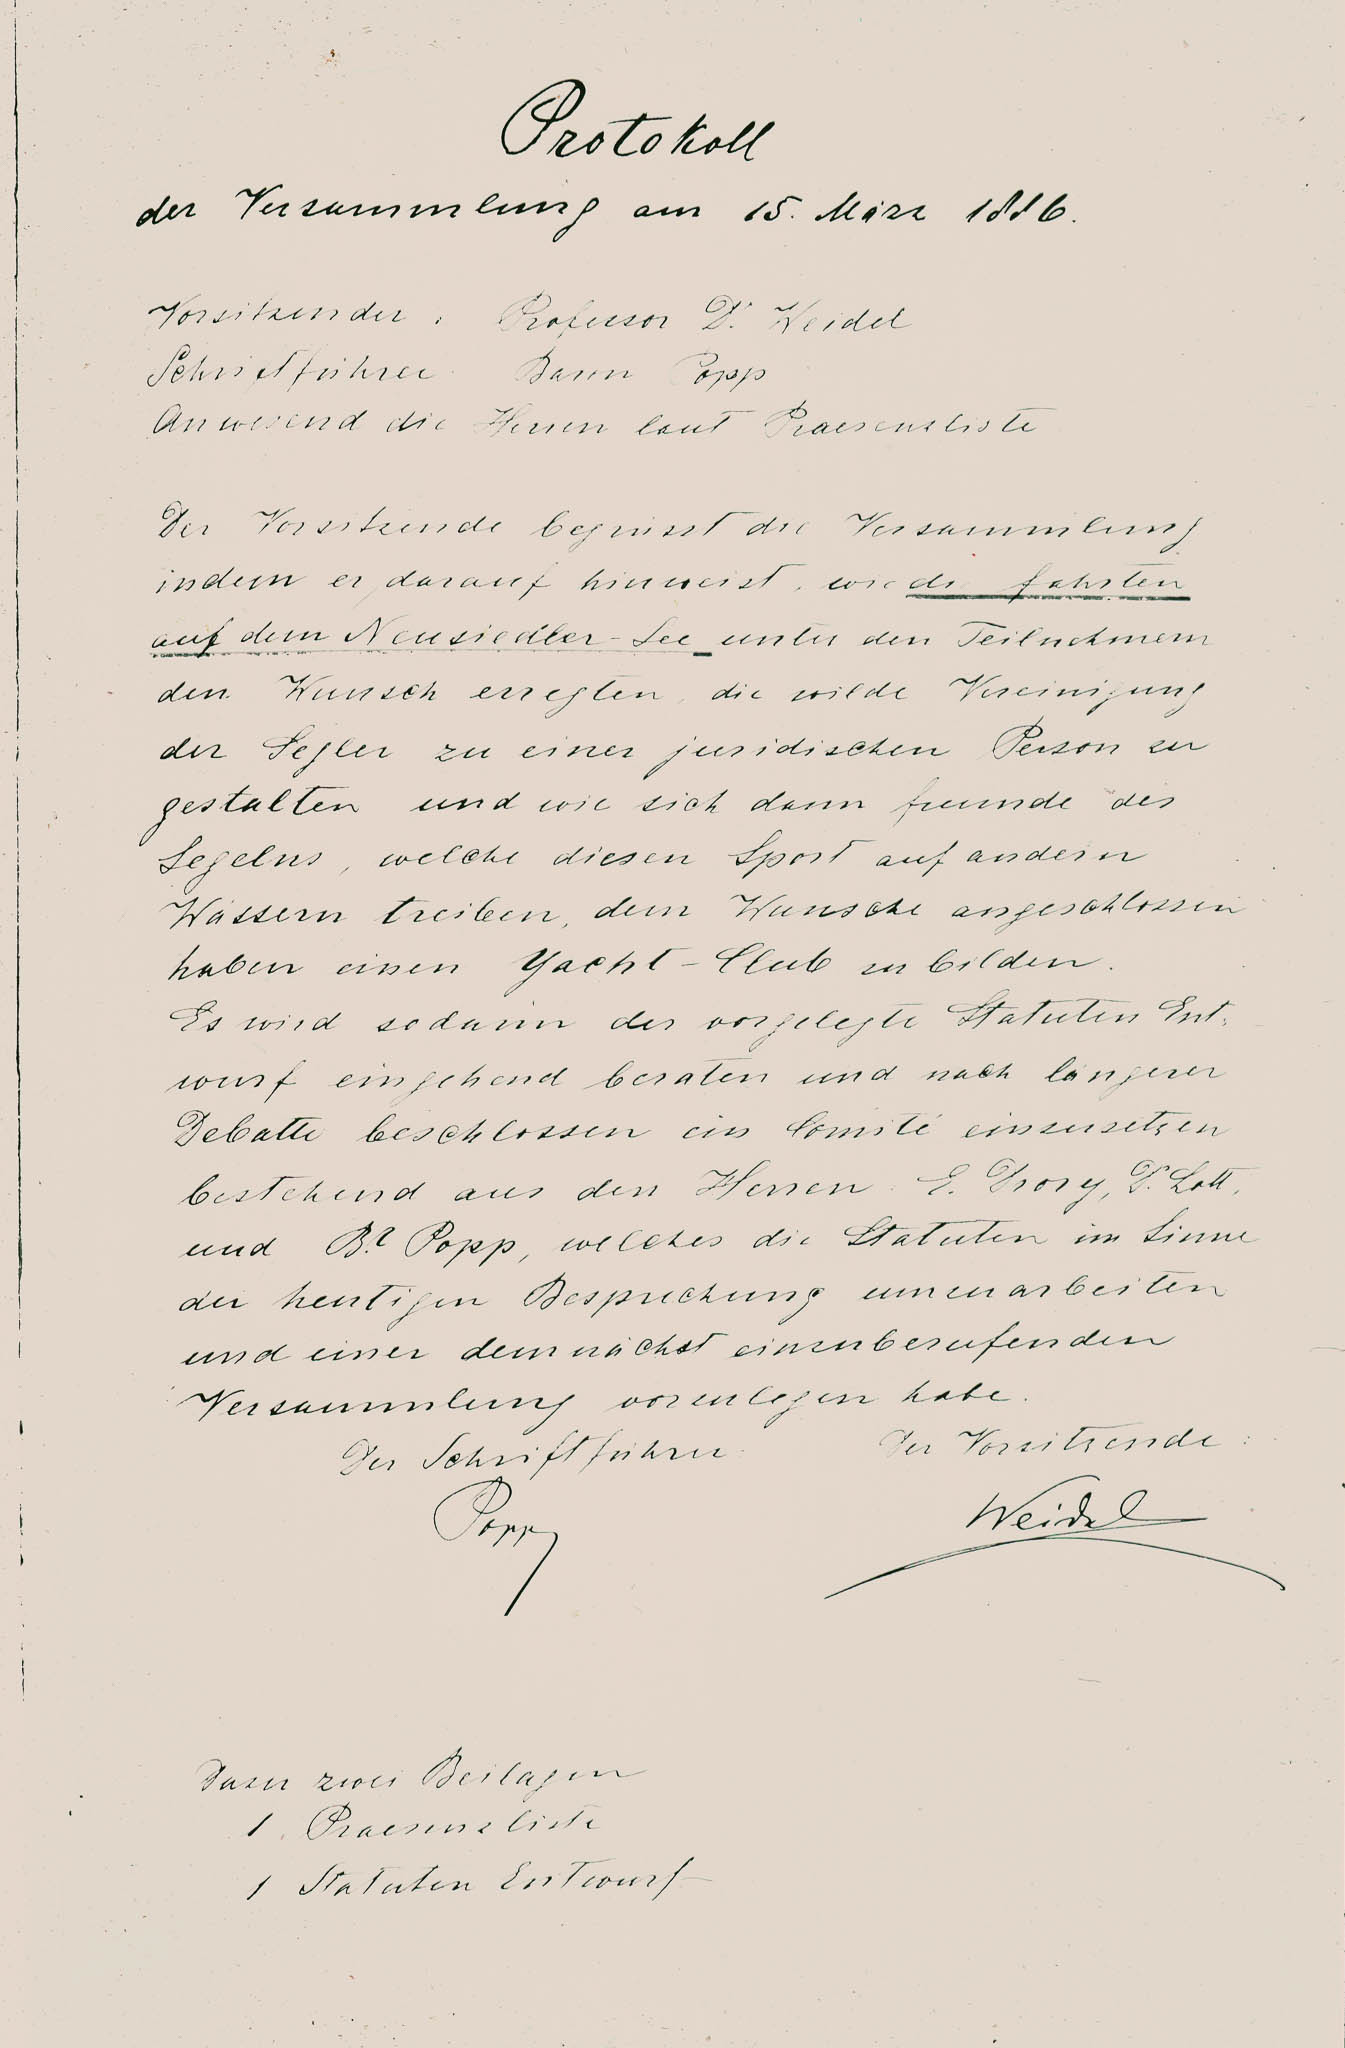 Protokoll
der Versammlung am 15. März 1886.
Vorsitzender: Professor Dr. Weidel
Schriftführer Baron Popp
Anwesend die Herren laut Praesenzliste
Der Vorsitzende begrüsst die Versammlung
indem er darauf hinweist, wie die Fahrten
auf dem Neusiedler-See unter den Teilnehmern
den Wunsch erregten, die wilde Vereinigung
der Segler zu einer juridischen Person zu
gestalten und wie sich dann Freunde des
Segelns, welche diesen Sport auf andern
Wässern treiben, dem Wunsche angeschlossen
haben einen Yacht-Club zu bilden.
Es wird sodann der vorgelegte Statuten Ent-
wurf eingehend beraten und nach längerer
Debatte beschlossen ein Comité einzusetzen
bestehend aus den Herren E. Drory, Dr. Lott,
und Br. Popp, welches die Statuten im Sinne
der heutigen Besprechung umzuarbeiten
und einer demnächst einzuberufenden
Versammlung vorzulegen habe.
Der Schriftführer: Der Vorsitzende:
Popp Weidel
Dazu zwei Beilagen
1. Praesenzliste
1 Statuten Entwurf